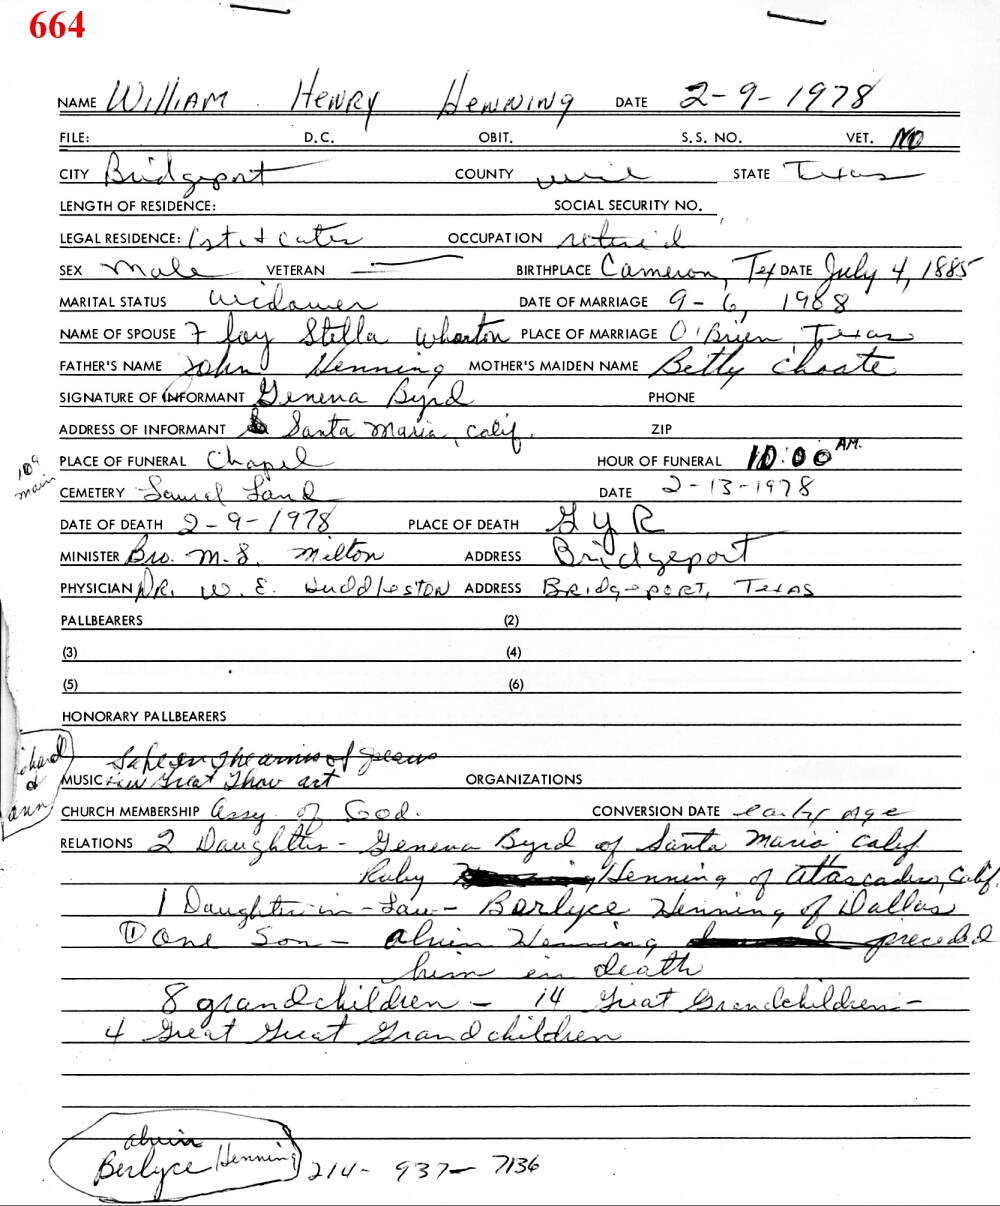 664
NAME William Henry Henning DATE 2-9-1978
FILE: D.C. OBIT. S.S. NO. VET. NO
CITY Bridgeport COUNTY Wise STATE Texas
LENGTH OF RESIDENCE: SOCIAL SECURITY NO.
LEGAL RESIDENCE: OCCUPATION retired
SEX Male VETERAN — BIRTHPLACE Cameron, Tex DATE July 4, 1885
MARITAL STATUS Widower DATE OF MARRIAGE 9-6, 1908
NAME OF SPOUSE Floy Stella Wharton PLACE OF MARRIAGE O'Brien, Texas
FATHER'S NAME John Henning MOTHER'S MAIDEN NAME Betty Choate
SIGNATURE OF INFORMANT Geneva Byrd PHONE
ADDRESS OF INFORMANT Santa Maria, Calif. ZIP
PLACE OF FUNERAL Chapel HOUR OF FUNERAL 10:00 AM.
main
CEMETERY Laurel Land DATE 2-13-1978
DATE OF DEATH 2-9-1978 PLACE OF DEATH G Y R
MINISTER Bro. M.S. Milton ADDRESS Bridgeport
PHYSICIAN DR. W. E. Huddleston ADDRESS Bridgeport, Texas
PALLBEARERS (2)
(3) (4)
(5) (6)
HONORARY PALLBEARERS
Safe in the arms of Jesus
MUSIC How Great Thou art ORGANIZATIONS
ichard & ann
CHURCH MEMBERSHIP Assy. of God. CONVERSION DATE early age
RELATIONS 2 Daughters - Geneva Byrd of Santa Maria Calif
Ruby Henning of Atascadero, Calif.
1 Daughter-in-Law - Berlyce Henning of Dallas
① One Son - Alvin Henning preceded
him in death
8 grandchildren - 14 Great Grandchildren -
4 Great Great Grandchildren
Alvin
Berlyce Henning 214-937-7136